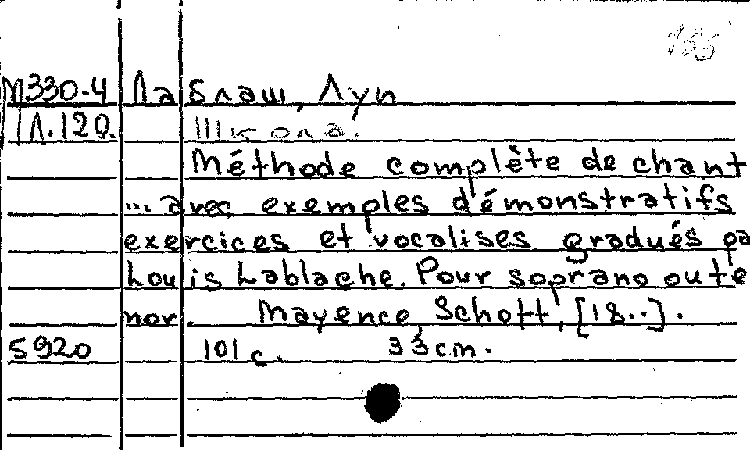 155
М330-4 Лаблаш, Луи
Л.120. Школа.
Méthode complète de chant
... avec exemples d'émonstratifs
exercices et vocalises gradués pa
Louis Lablache. Pour soprano ou té
nor. Mayence, Schott, [18..].
5920 101 с. 33 cm.